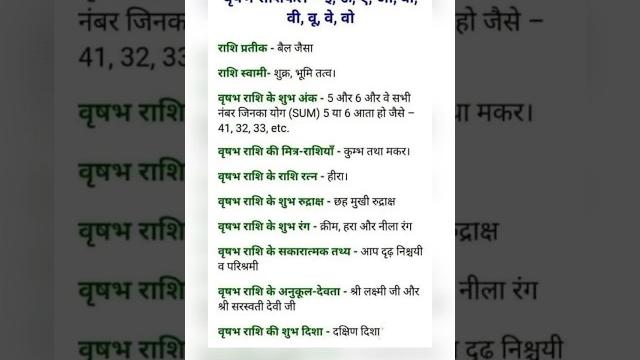 वी, वू, वे, वो
राशि प्रतीक - बैल जैसा
राशि स्वामी- शुक्र, भूमि तत्व।
वृषभ राशि के शुभ अंक - 5 और 6 और वे सभी
नंबर जिनका योग (SUM) 5 या 6 आता हो जैसे –
41, 32, 33, etc.
वृषभ राशि की मित्र-राशियाँ - कुम्भ तथा मकर।
वृषभ राशि के राशि रत्न - हीरा।
वृषभ राशि के शुभ रुद्राक्ष - छह मुखी रुद्राक्ष
वृषभ राशि के शुभ रंग - क्रीम, हरा और नीला रंग
वृषभ राशि के सकारात्मक तथ्य - आप दृढ़ निश्चयी
व परिश्रमी
वृषभ राशि के अनुकूल-देवता - श्री लक्ष्मी जी और
श्री सरस्वती देवी जी
वृषभ राशि की शुभ दिशा - दक्षिण दिशा